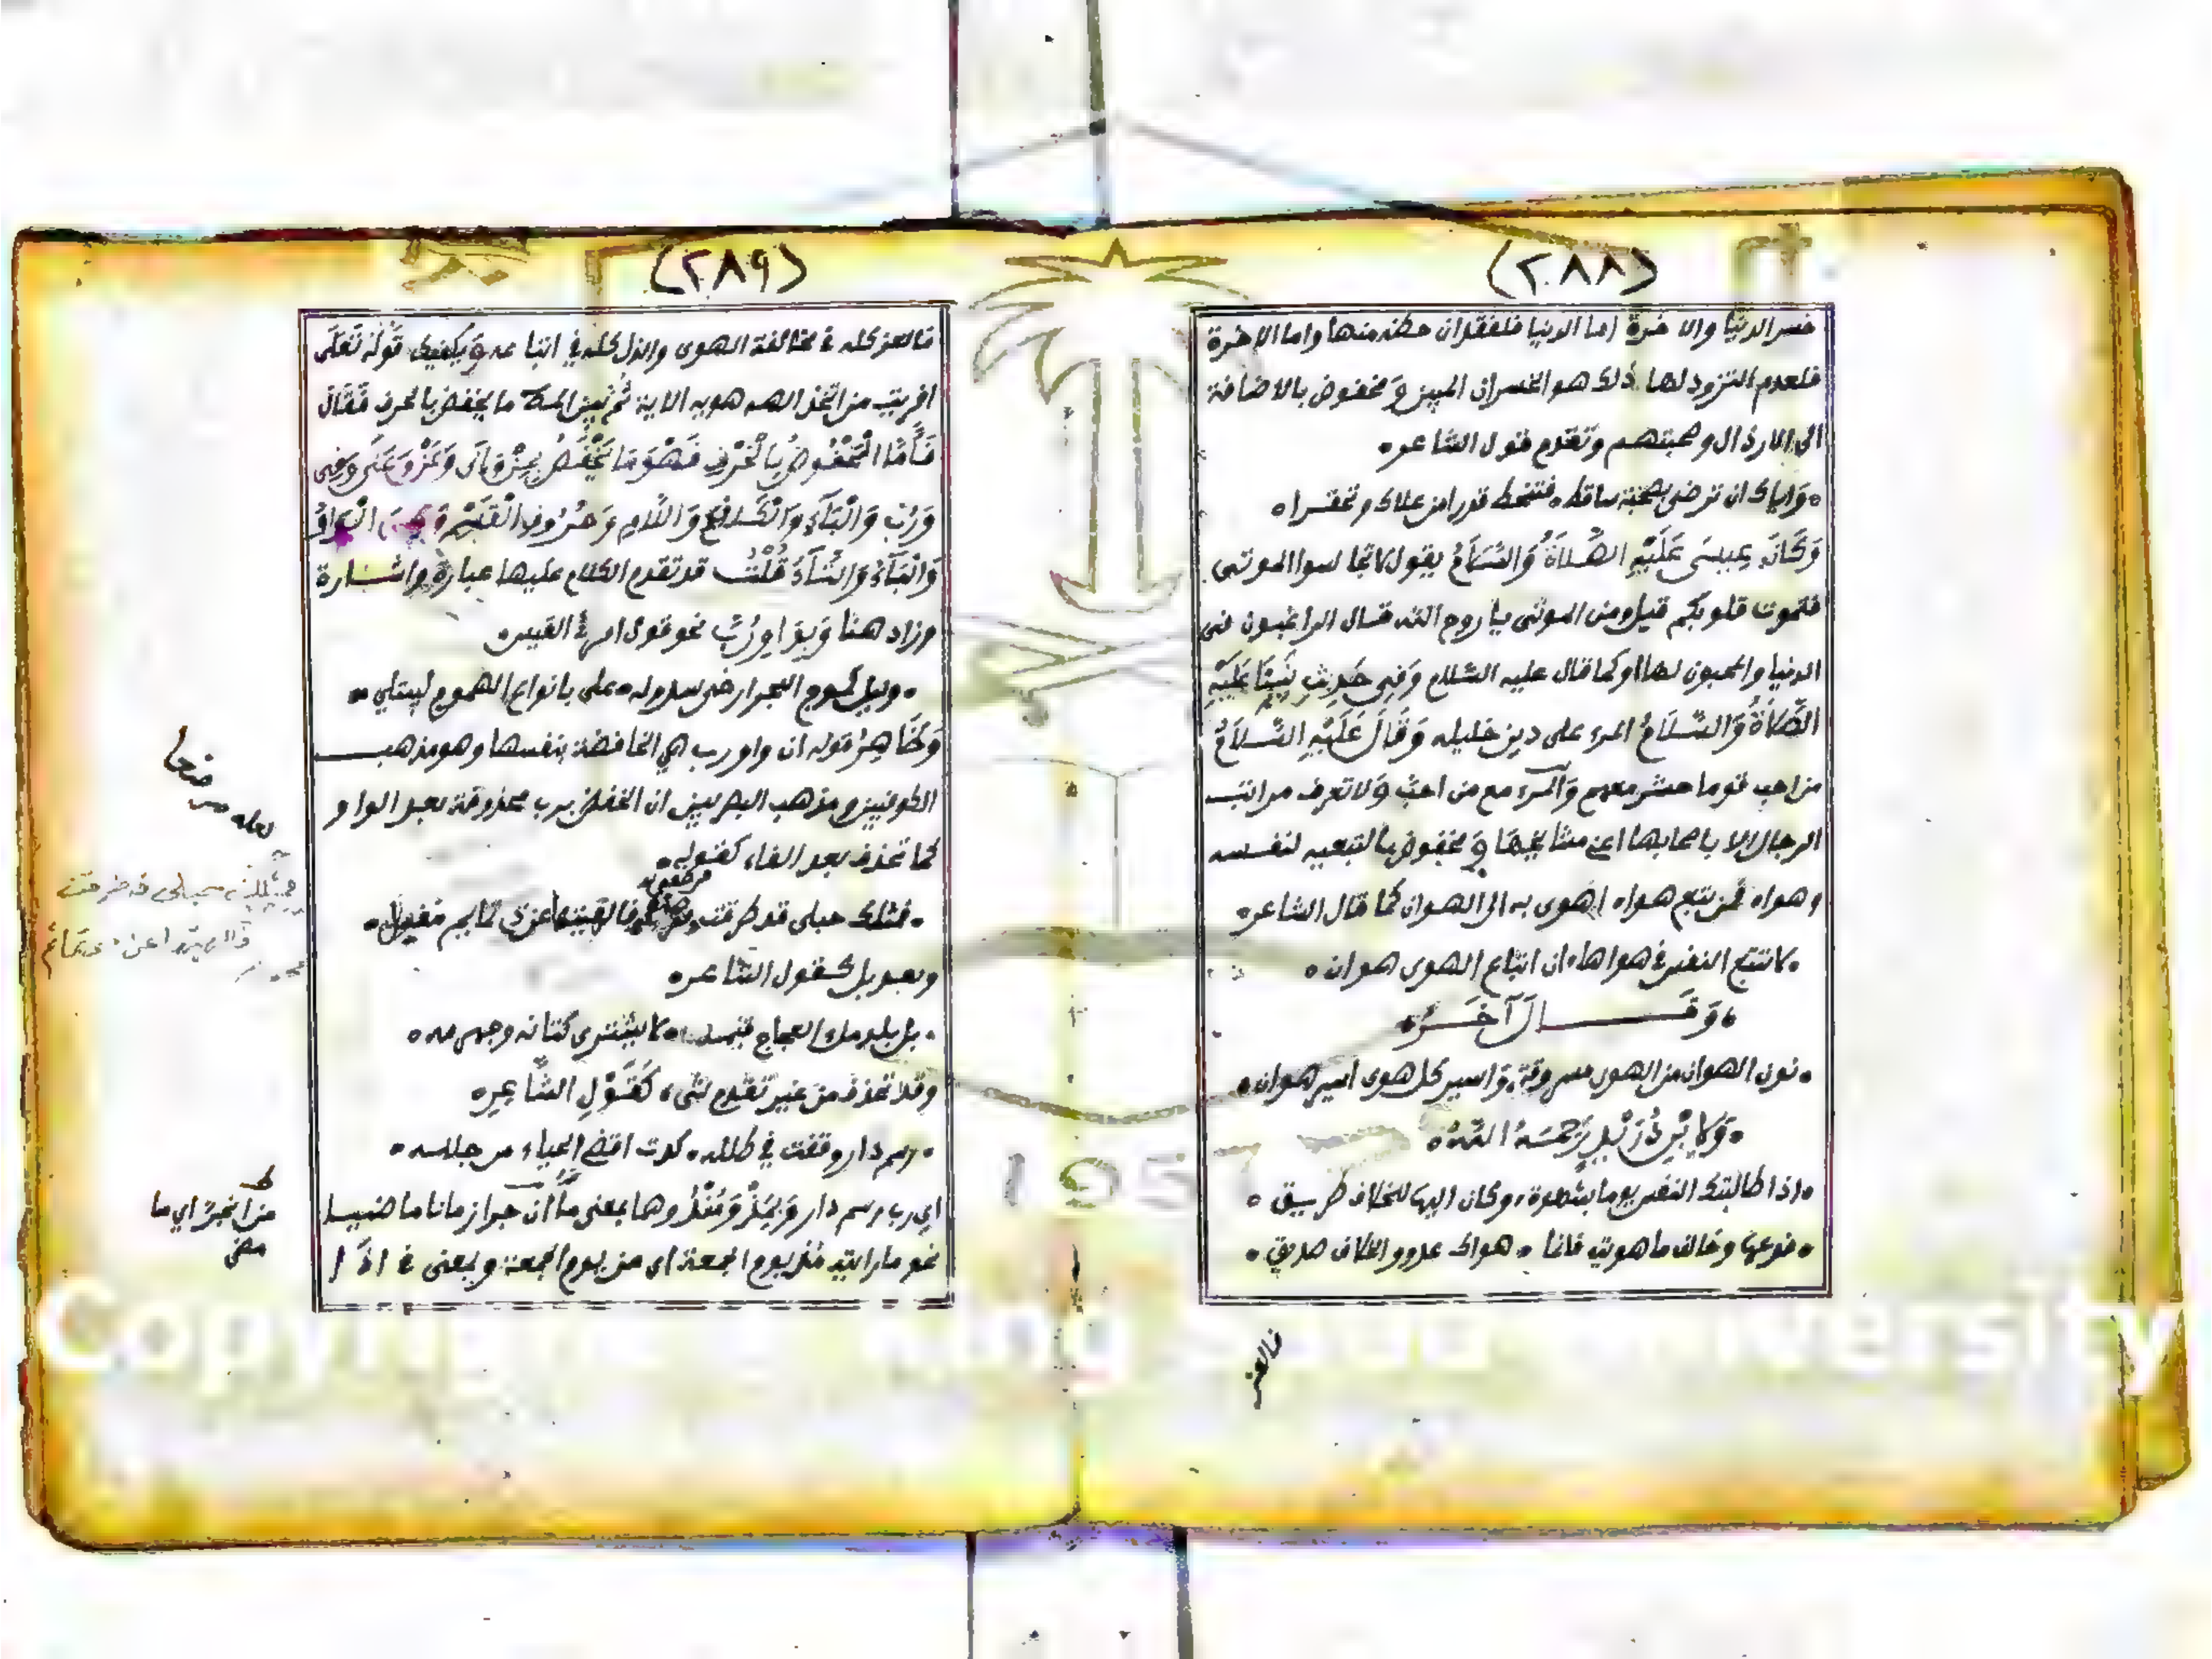 (٢٨٨)
خسر الدنيا والاخرة اما الدنيا فلفقدان حظه منها واما الاخرة
فلعدم التزود لها ذلك هو الخسران المبين و مخفوض بالاضافة
الى الارذال وصحبتهم وتقدم قول الشاعر
واياك ان ترضى بصحبة ساقط فتنحط قدرا من علاك وتحقرا
وَكَانَ عِيسَى عَلَيْهِ الصَّلاَةُ وَالسَّلاَمُ يقول لا تجالسوا الموتى
فتموت قلوبكم قيل ومن الموتى يا روح الله قال الراغبون فى
الدنيا والمحبون لها او كما قال عليه السلام وَفِى حَدِيثِ نَبِيِّنَا عَلَيْهِ
الصَّلاَةُ وَالسَّلاَمُ المرء على دين خليله وَقَالَ عَلَيْهِ السَّلاَمُ
من احب قوما حشر معهم وَالمرء مع من احب وَلا تعرف مراتب
الرجال الا باصحابها اعنى مشايخها وَ مخفوض بالتبعيه لنفسه
وهواه فمن تبع هواه اهوى به الى الهوان كما قال الشاعر
لا تتبع النفس في هواها ان اتباع الهوى هوان
وَقَــــالَ آخَــرُ
نون الهوان من الهوى مسروقة واسير كل هوى اسير هوان
رَحِمَهُ اللَّهُ
اذا طالبتك النفس يوما بشهوة وكان اليها للخلاف طريق
فدعها وخالف ما هويت فانما هواك عدو والخلاف صديق
فالعز
(٢٨٩)
فالعز كله في مخالفة الهوى والذل كله في اتباعه وَيكفيك قَوْلُهُ تَعَلَى
افريت من اتخذ الهه هويه الاية ثُمَّ بين المص ما يخفض بالحرف فَقَال
فَأَمَّا الْمَخْفُوضُ بِالْحَرْفِ فَهْوَ مَا يُخْفَضُ بِمِنْ وَاِلَى وَعَنْ وَعَلَى وَفِى
وَرُبَّ وَالْبَآءِ وَالْكَافِ وَاللَّامِ وَحُرُوفِ الْقَسَمِ وَهِىَ الْوَاوُ
وَالْبَآءُ وَالتَّآءُ قُلْتُ قد تقدم الكلام عليها عبارة واشــارة
وزاد هنا وَبِوَاوِ رُبَّ نحو قول امرئ القيس
وليل كموج البحر ارخى سدوله على بانواع الهموم ليبتلي
وَظَاهِرُ قوله ان واو رب هي الخافضة بنفسها وهو مذهب
الكوفيين ومذهب البصريين ان الخفض برب محذوفة بعد الواو
كما تحذف بعد الفاء كقوله
فمثلك حبلى قد طرقت ومرضع فالهيتها عن ذى تمايم مغيل
وبعد بل كقول الشاعر
بل بلد ملء الفجاج قتمه لا يشترى كتانه وجهرمه
وقد تحذف من غير تقدم لشىء كَقَوْلِ الشَّاعِرِ
رسم دار وقفت في طلله كدت اقضى الحياء من جلله
اي رب رسم دار وَ بِمُذْ وَمُنْذُ وهما بمعنى من ان جرا زمانا ماضيــا
نحو ما رايته منذ يوم الجمعة اى من يوم الجمعة وبمعنى في اذا
لعله مرضعا
من ان جرا اي ما
مضى